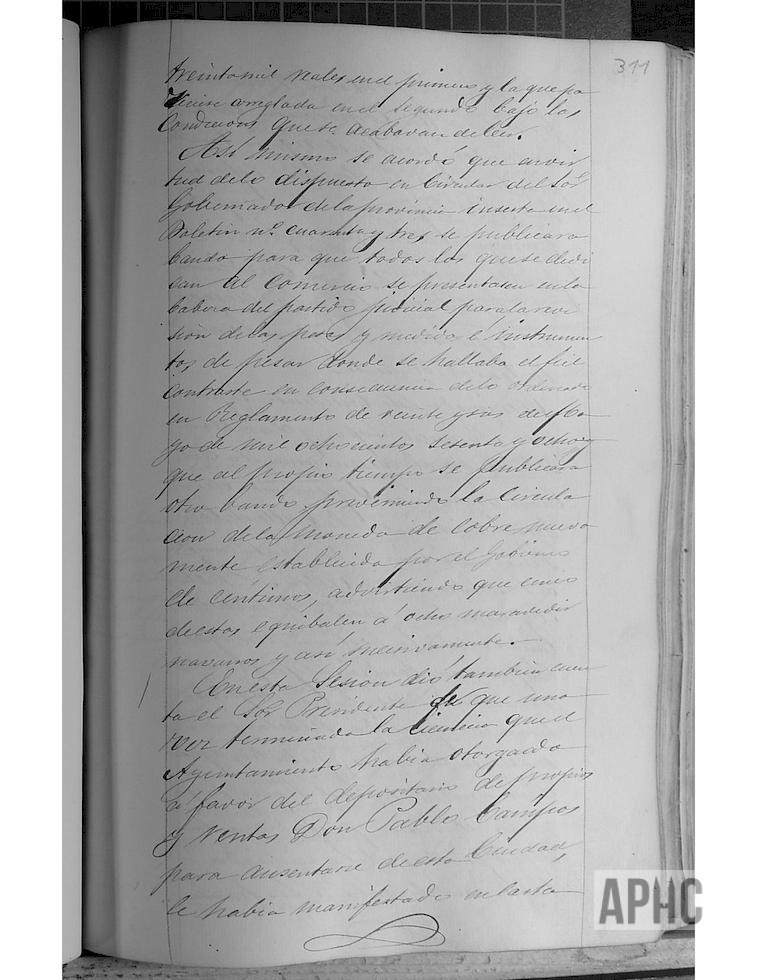 311
treinta mil reales en el primero y la que pa
reciese arreglada en el segundo bajo las
Condiciones que se acababan de leer.
Asi mismo se acordó que en vir
tud de lo dispuesto en Circular del Sor
Gobernador de la provincia inserta en el
Boletin nº cuarenta y tres se publicara
bando para que todos los que se dedi
can al Comercio se presentasen en la
Cabeza del partido judicial para la revi
sion de las pesas y medidas e instrumen
tos de pesar donde se hallaba el fiel
contraste en consecuencia de lo ordenado
en Reglamento de veinte y seis de Ma
yo de mil ochocientos setenta y ocho y
que al propio tiempo se publicara
otro bando previniendo la Circula
cion de la moneda de Cobre nueva
mente establecida por el Gobierno
de centimos, advirtiendo que cinco
de estos equibalen á ocho maravedis
navarros y así sucesivamente.
En esta Sesion dió tambien cuen
ta el Sor Presidente de que una
vez terminada la licencia que el
Ayuntamiento habia otorgado
a favor del depositario de propios
y rentas Don Pablo Campos
para ausentarse de esta Ciudad,
le habia manifestado en carta
APHC